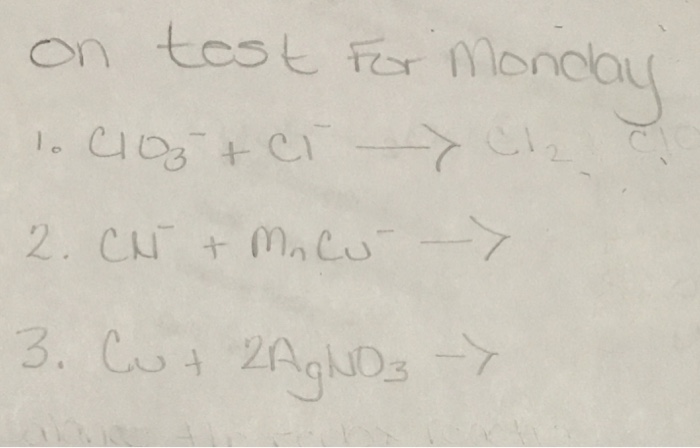 on test For Monday
1. ClO3⁻ + Cl⁻ → Cl2
2. CN⁻ + MnCu⁻ →
3. Cu + 2AgNO3 →